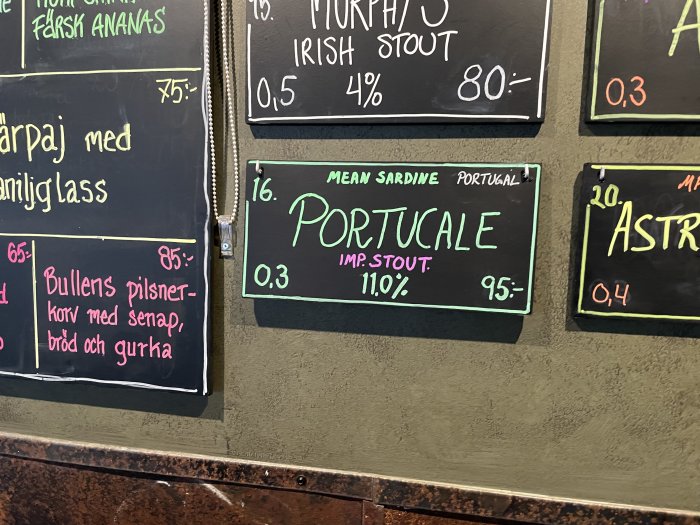 FÄRSK ANANAS
75:-
med
65:-
85:-
Bullens pilsner-
korv med senap,
bröd och gurka
15.
MURPHY'S
IRISH STOUT
0,5 4% 80:-
16. MEAN SARDINE PORTUGAL
PORTUCALE
IMP. STOUT.
0,3 11,0% 95:-
0,3
20.
0,4